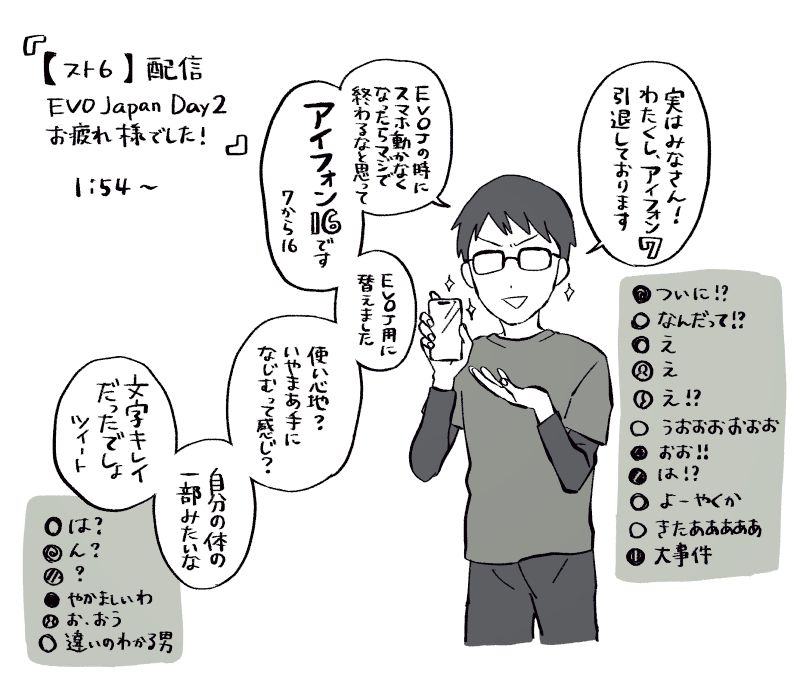 『
【スト6】配信
EVO Japan Day2
お疲れ様でした!
』
1:54~
実はみなさん!
わたくし、アイフォン7
引退しております
ついに!?
なんだって!?
え
え
え!?
うおおおおおお
おお!!
は!?
よーやくか
きたあああああ
大事件
EVOJの時に
スマホ動かなく
なったらマジで
終わるなと思って
アイフォン16です
7から16
EVOJ用に
替えました
使い心地?
いやまあ手に
なじむって感じ?
自分の体の
一部みたいな
文字キレイ
だったでしょ
ツイート
は?
ん?
?
やかましいわ
お、おう
違いのわかる男